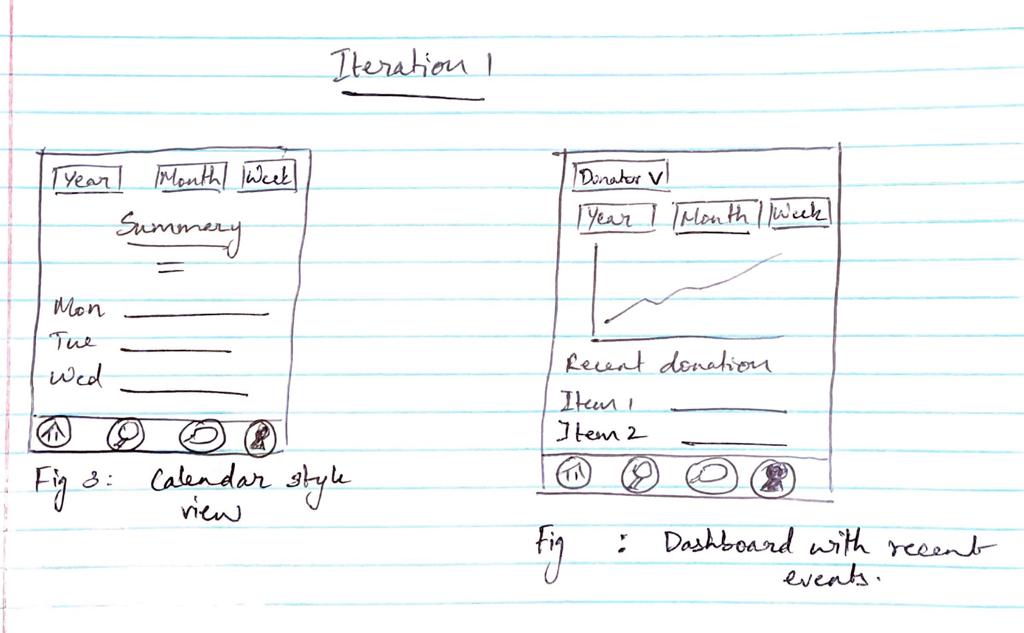 Iteration 1
Year Month Week
Summery
Mon
Tue
Wed
Fig 3: Calendar style
view
Donator V
Year Month Week
Recent donation
Item 1
Item 2
Fig : Dashboard with recent
events.